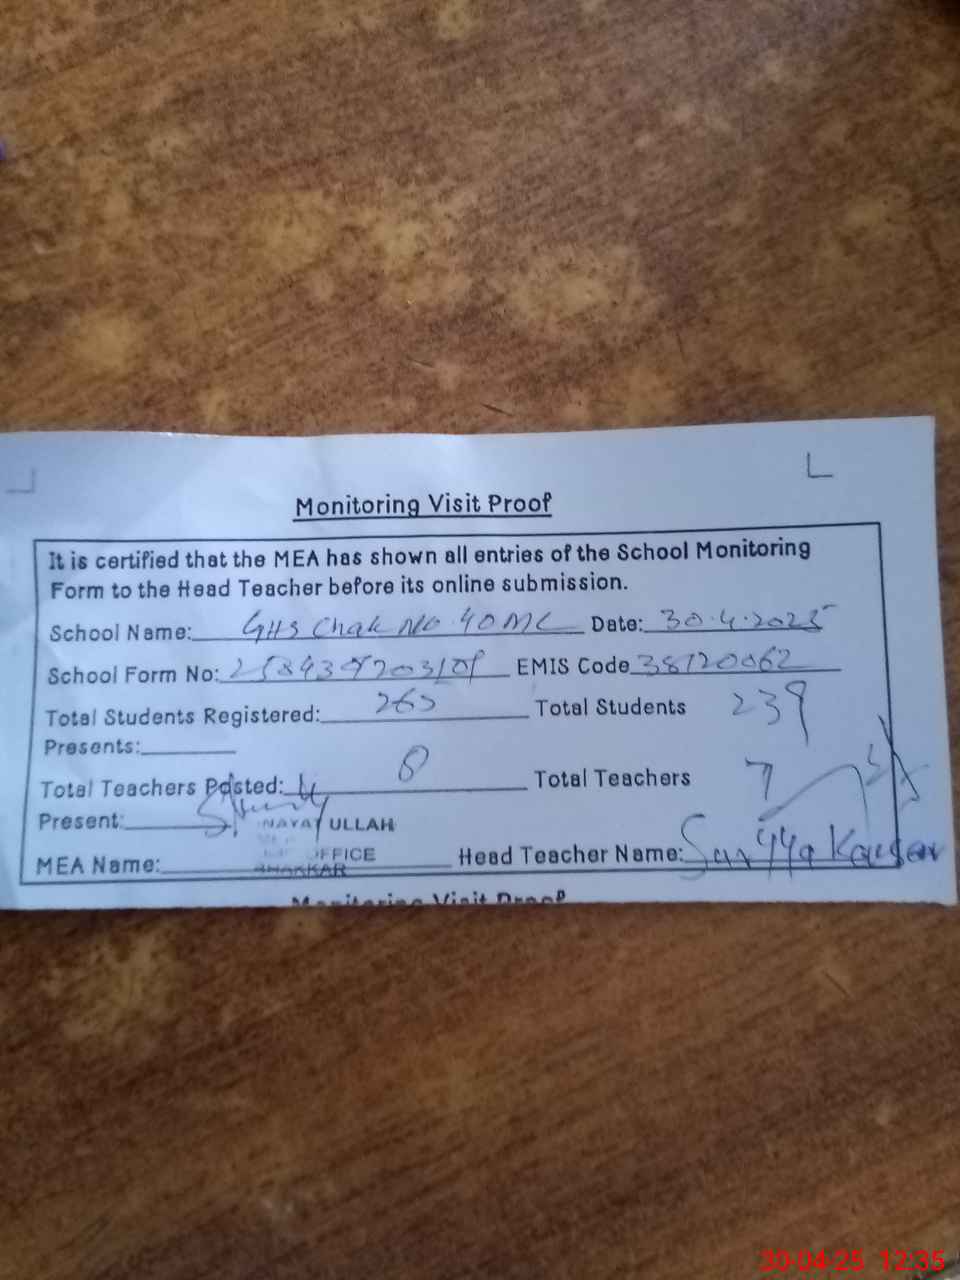 Monitoring Visit Proof
It is certified that the MEA has shown all entries of the School Monitoring
Form to the Head Teacher before its online submission.
School Name: GHS Chak No 40 ML Date: 30.4.2025
School Form No: EMIS Code 38120062
Total Students Registered: 265 Total Students 239
Presents:
Total Teachers Posted: 8 Total Teachers 7
Present: NAYAT ULLAH
OFFICE
MEA Name: BHAKKAR Head Teacher Name: Surayya Kausar
Monitoring Visit Proof
30-04-25 12:35